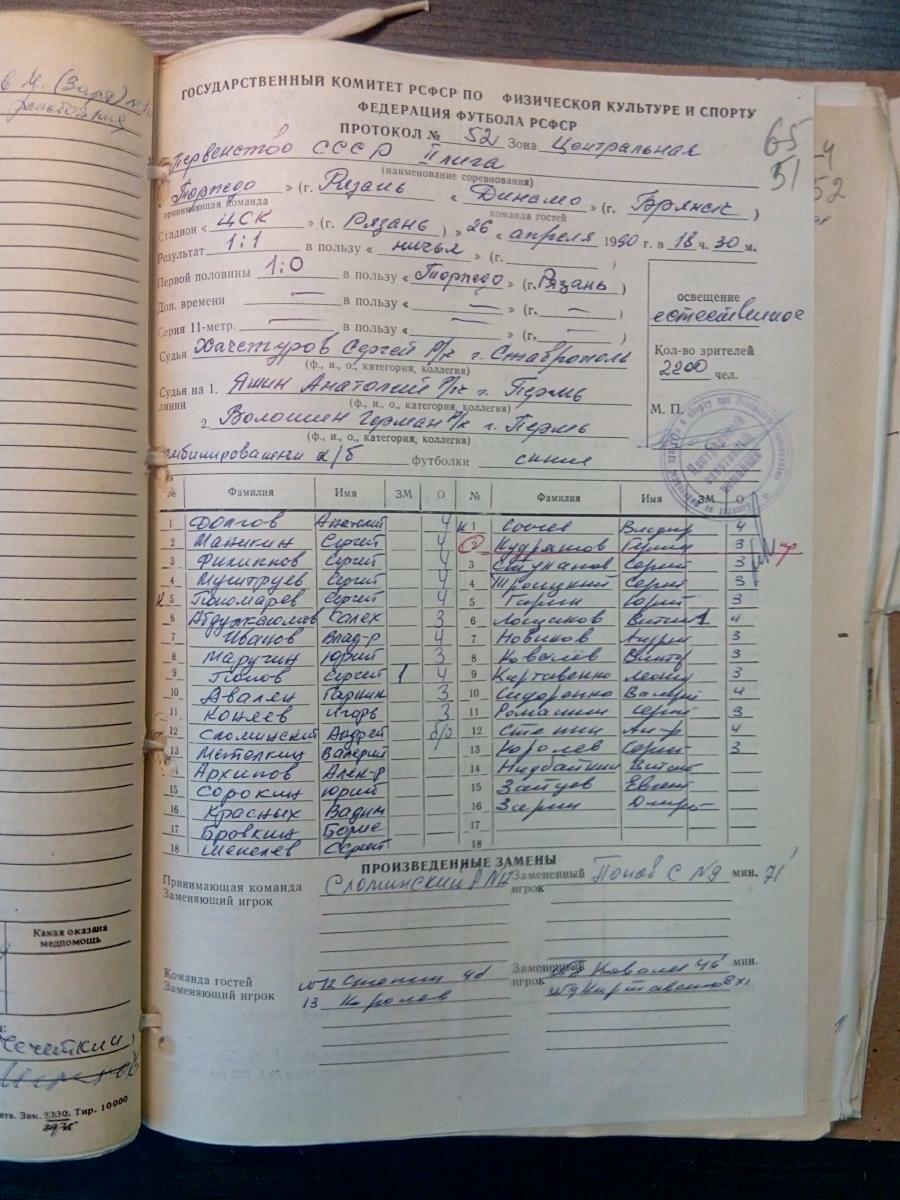 в М. (Заря) №
ГОСУДАРСТВЕННЫЙ КОМИТЕТ РСФСР ПО ФИЗИЧЕСКОЙ КУЛЬТУРЕ И СПОРТУ
ФЕДЕРАЦИЯ ФУТБОЛА РСФСР
ПРОТОКОЛ № 52 Зона Центральная
65
51
52
Первенство СССР II лига
(наименование соревнования)
Торпедо » (г. Рязань « Динамо » (г. Брянск )
принимающая команда команда гостей
Стадион « ЦСК » (г. Рязань ) » 26 « апреля 1990 г. в 18 ч. 30 м.
Результат 1:1 в пользу « ничья » (г. )
Первой половины 1:0 в пользу « Торпедо » (г. Рязань )
Доп. времени — в пользу « — » (г. — )
Серия 11-метр. — в пользу « — » (г. — )
освещение
естественное
Кол-во зрителей
2200 чел.
М. П.
Судья Хачетуров Сергей Р/к г. Ставрополь
(ф., и., о., категория, коллегия)
Судья на 1. Яшин Анатолий Р/к г. Пермь
линии (ф., и., о., категория, коллегия)
2. Волошин Герман Р/к г. Пермь
(ф., и., о., категория, коллегия)
к/б футболки синие
№ Фамилия Имя ЗМ О № Фамилия Имя ЗМ О
1 Долгов Анатолий 4 к 1 Владир 4
2 Маникин Сергей 4 2 Кудряшов 3
3 Филиппов Сергей 4 3 Ступанов Сергей 3
4 Муштруев Сергей 4 4 Троицкий Сергей 3
к 5 Пономарев Сергей 4 5 Гарин Юрий 3
6 Абдулкаюмов Салех 3 6 1 4
7 Иванов Влад-р 4 7 Новиков Андрей 3
8 Маручин Юрий 3 8 Ковалёв Виктор 3
9 Попов Сергей 1 4 9 Картавенко Леонид 3
10 Авалян Гарник 3 10 Сидоренко Валерий 4
11 Коняев Игорь 3 11 Романин Сергей 3
12 Сломинский Андрей б/о 12 Стопин 4
13 Метелкин Валерий 13 Королев Сергей 3
Архипов Алек-р 14
15 Сорокин Юрий 15 Зайцев Евгений
16 Красных Вадим 16
17 Бровкин Борис 17
18 Сергей 18
ПРОИЗВЕДЕННЫЕ ЗАМЕНЫ
Принимающая команда Сломинский А №12 Замененный Попов С №9 мин. 71'
Заменяющий игрок игрок
Команда гостей №12 Стопин 46 Замененный Ковалев 46' мин.
Заменяющий игрок 13 Королев игрок №9 Картавенко
Какая оказана
медпомощь
Зак. 3330. Тир. 10000